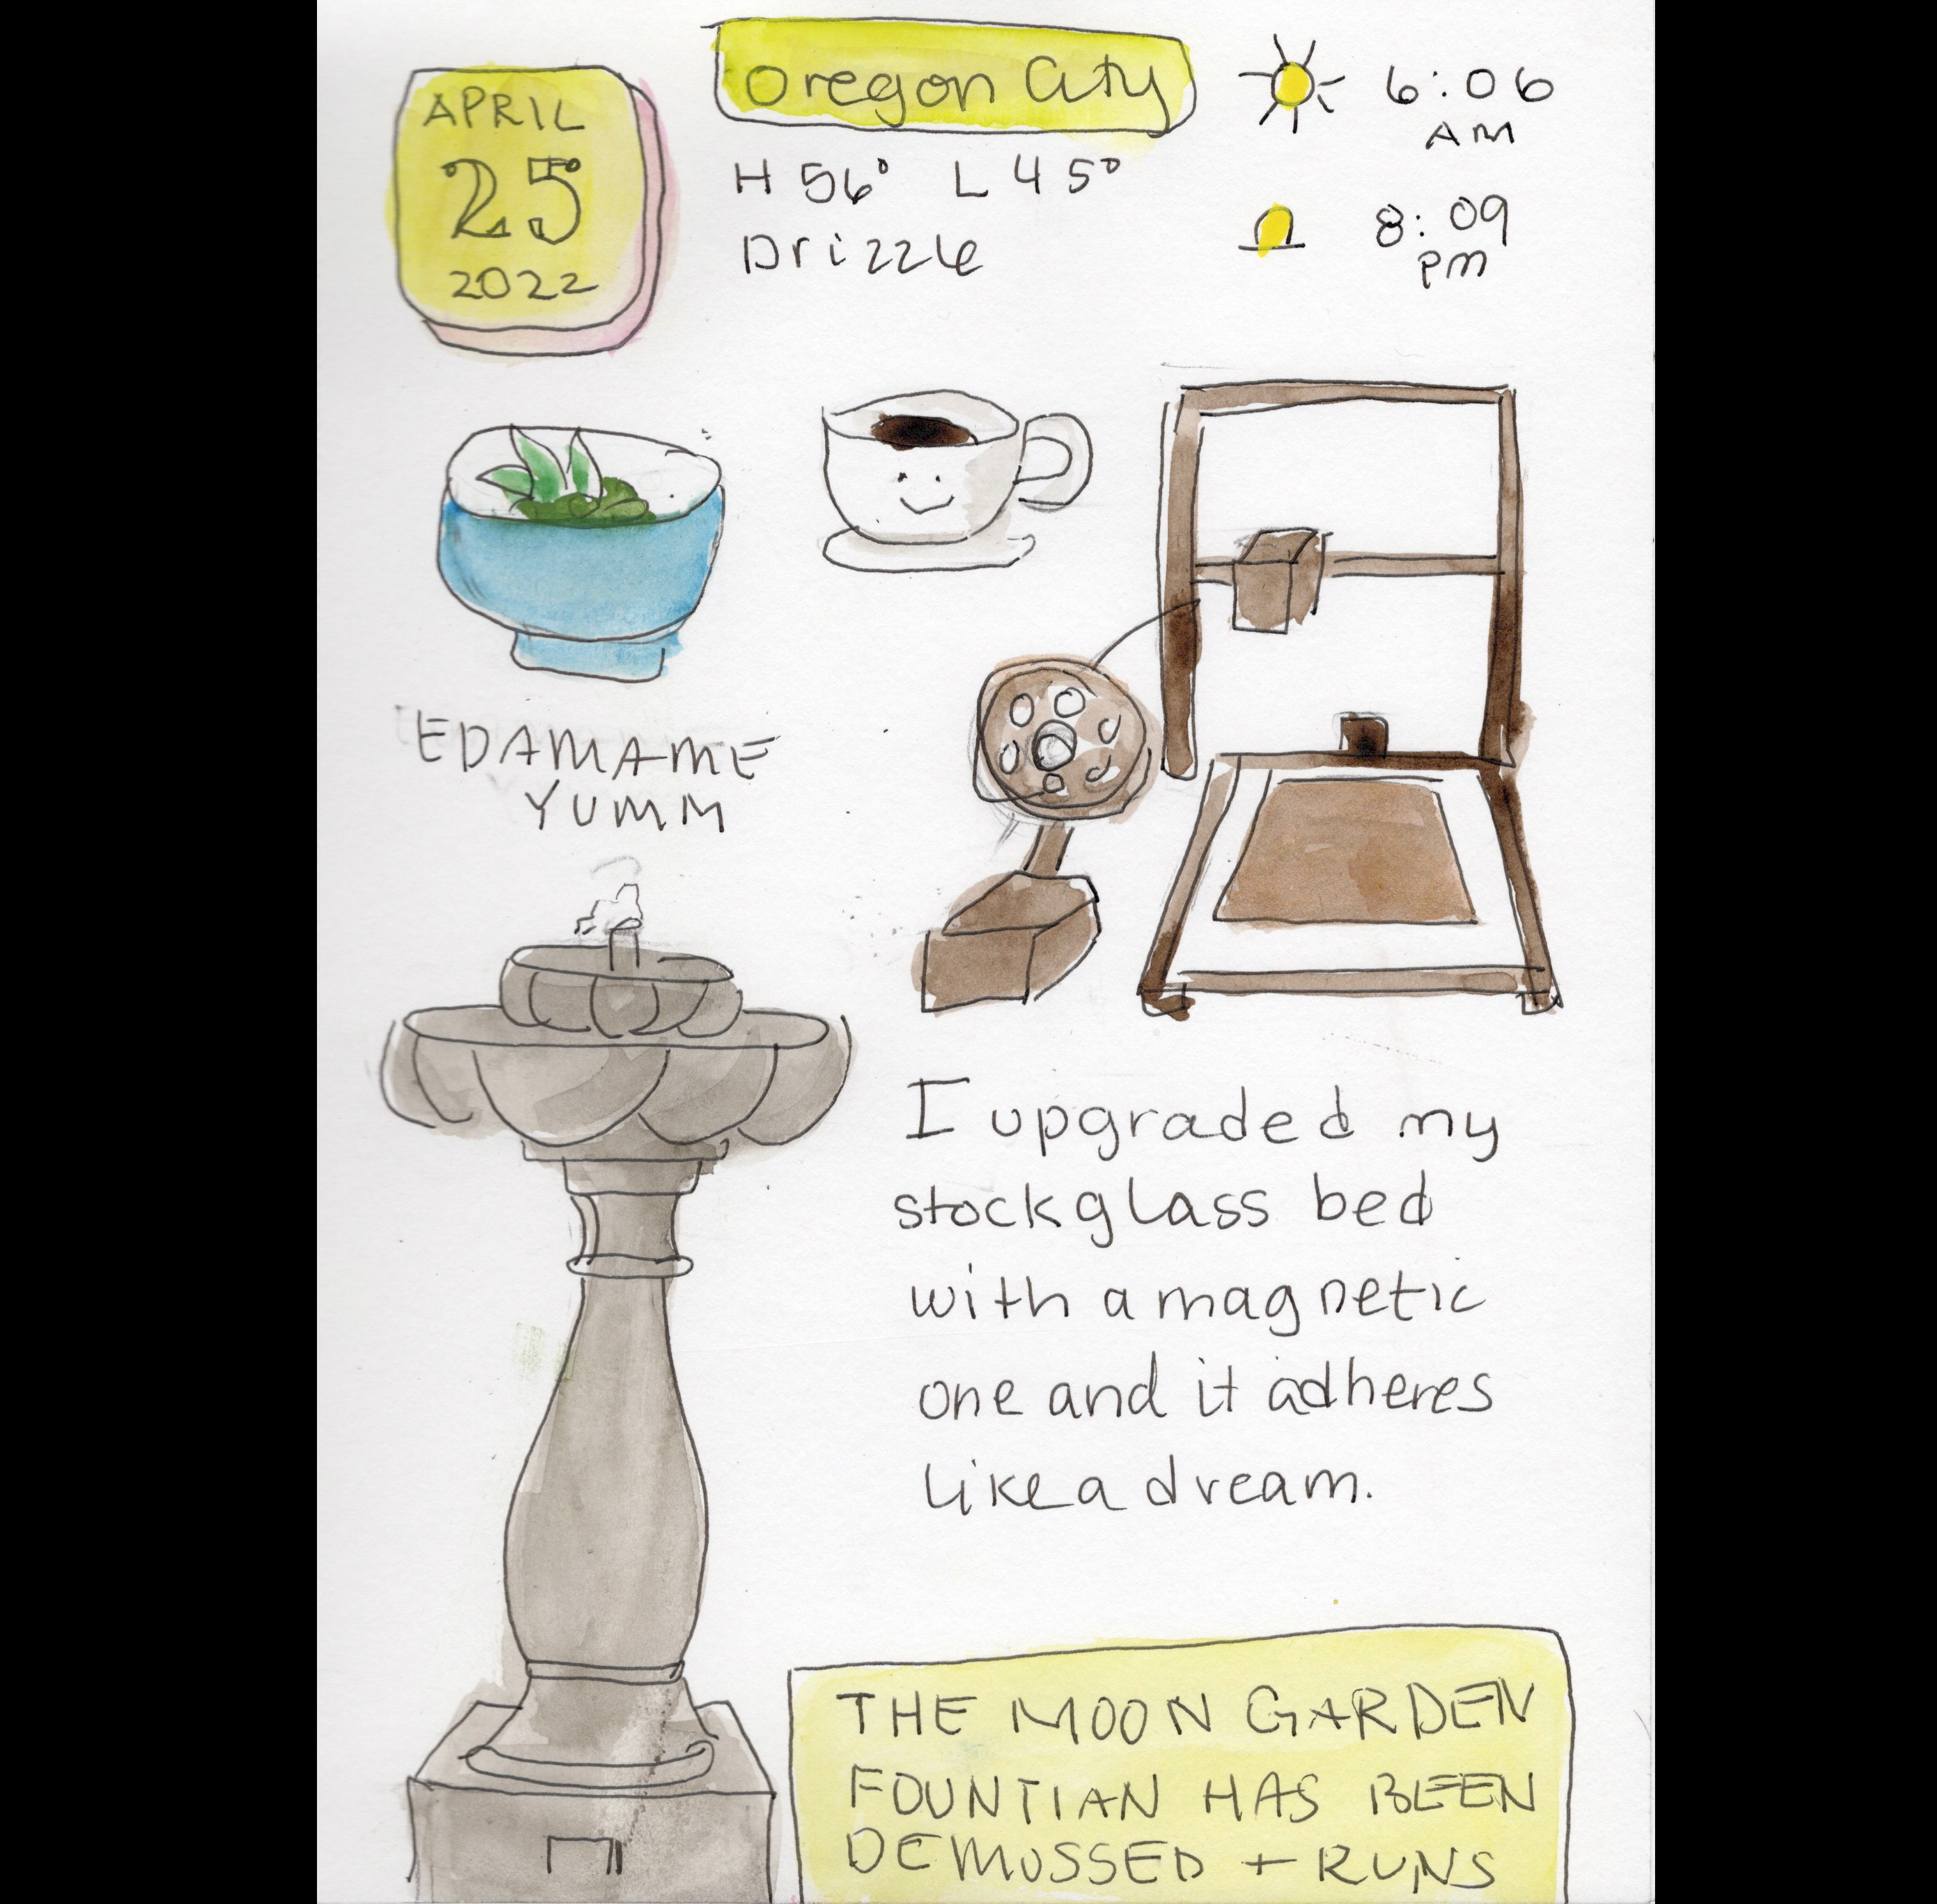 APRIL
25
2022
Oregon City
H 56° L 45°
Drizzle
6:06
AM
8:09
PM
EDAMAME
YUMM
I upgraded my
stock glass bed
with a magnetic
one and it adheres
like a dream.
THE MOON GARDEN
FOUNTIAN HAS BEEN
DEMOSSED + RUNS